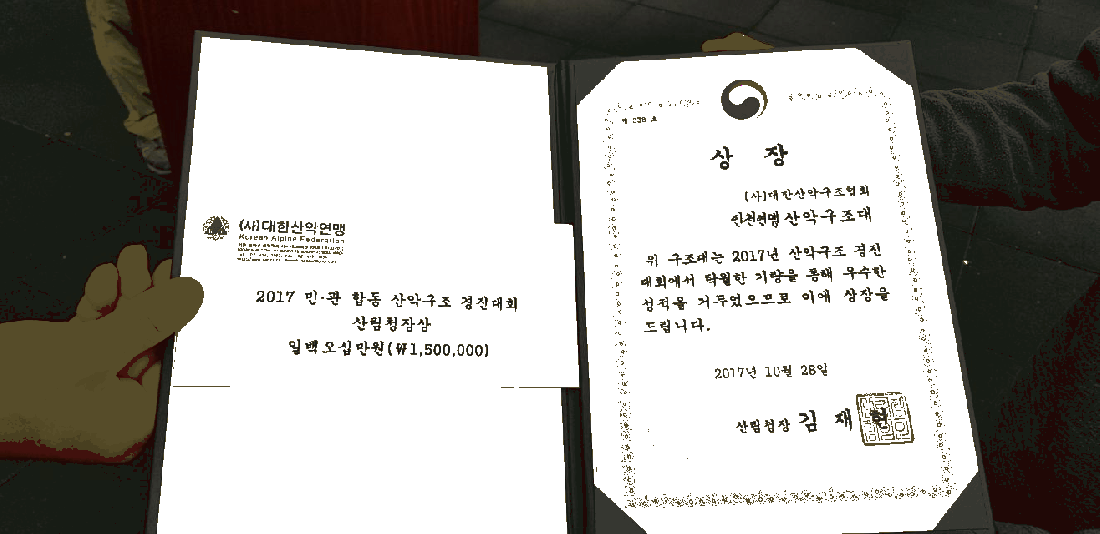 (사)대한산악연맹
Korean Alpine Federation
2017 민·관 합동 산악구조 경진대회
산림청장상
일백오십만원(₩1,500,000)
상 장
(사)대한산악구조협회
인천연맹 산악구조대
위 구조대는 2017년 산악구조 경진
대회에서 탁월한 기량을 통해 우수한
성적을 거두었으므로 이에 상장을
드립니다.
2017년 10월 28일
산림청장 김 재 현